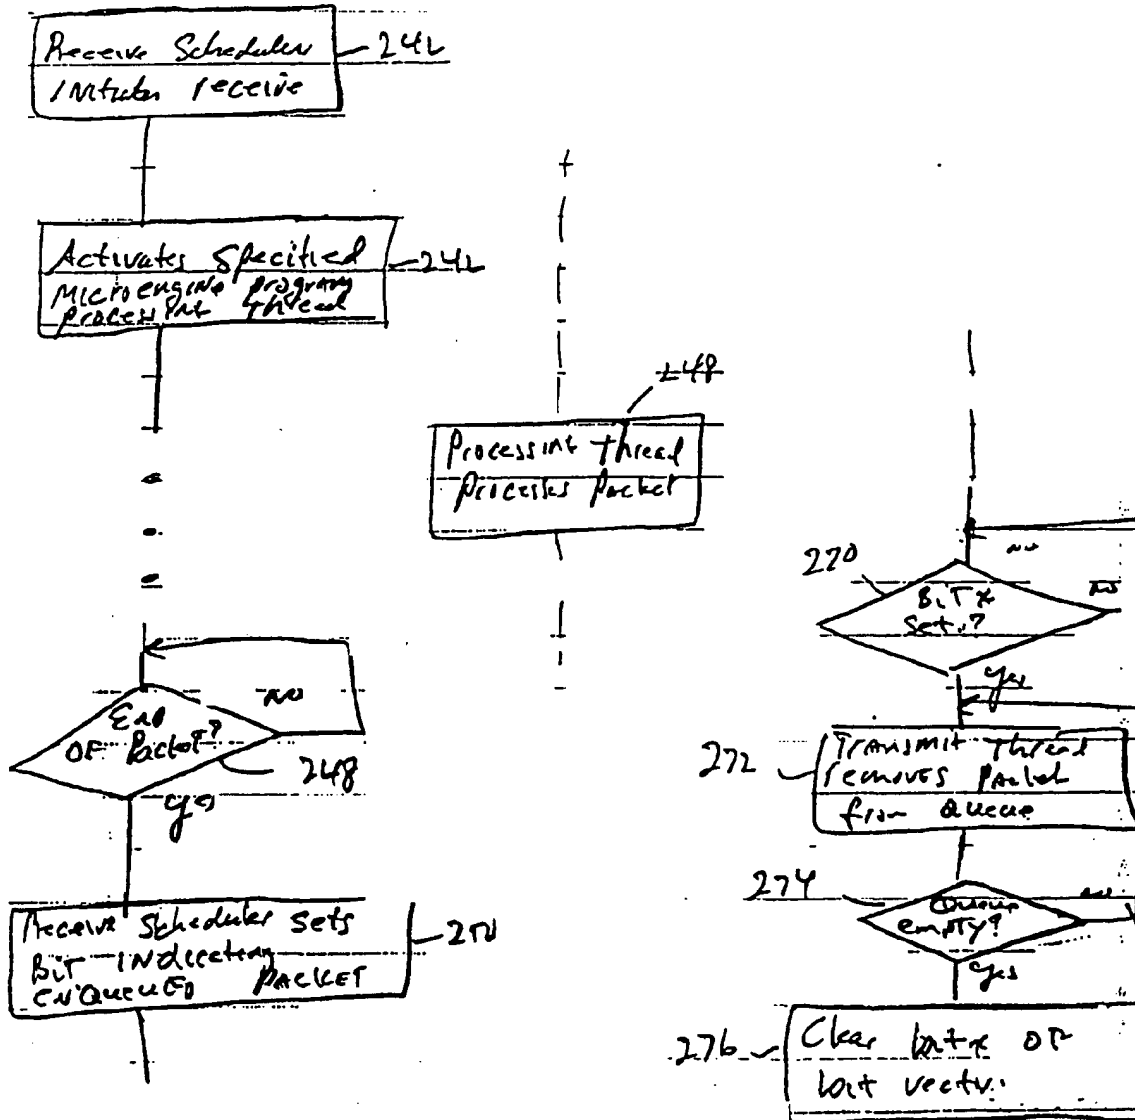 Receive Scheduler
Initiates receive
242
Activates Specified
Microengine program
processing thread
242
248
Processing thread
processes packet
End
OF Packet?
NO
248
yes
Receive Scheduler sets
BiT INDicating
ENQUEUED PACKET
no
270
BiT x
set?
no
yes
272
Transmit thread
removes packet
from Queue
274
Queue
empty?
no
yes
276
Clear bit x OF
bit vector